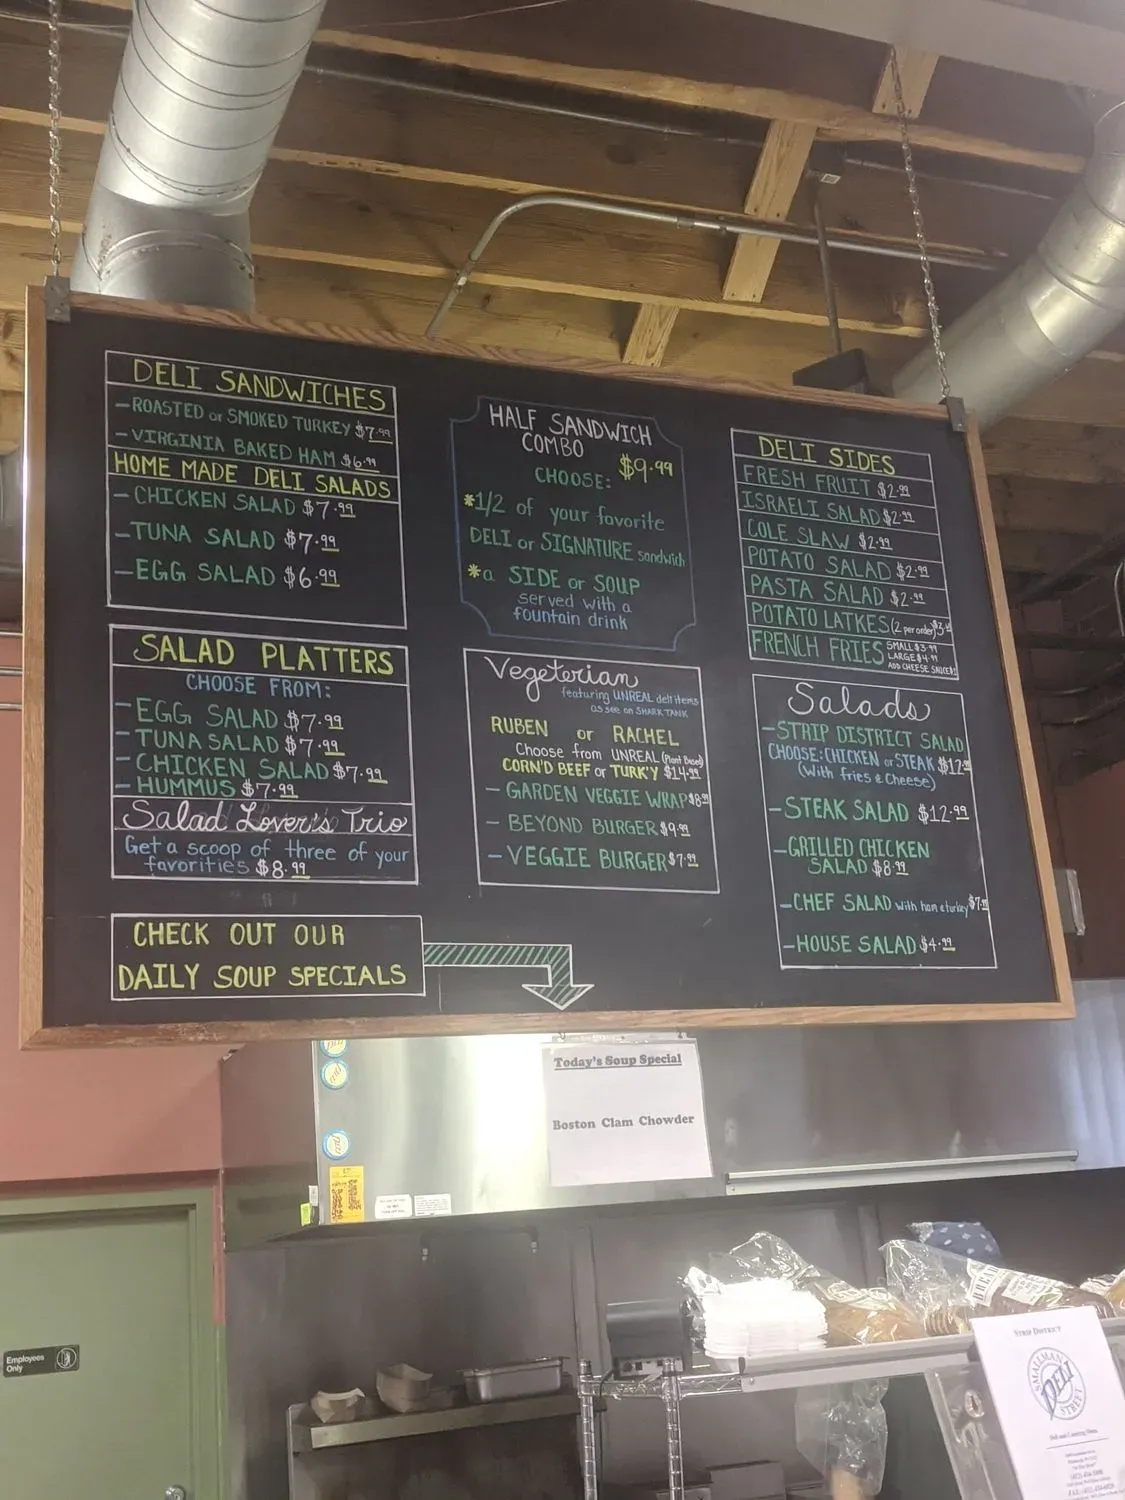 DELI SANDWICHES
- ROASTED or SMOKED TURKEY $7.99
- VIRGINIA BAKED HAM $6.99
HOME MADE DELI SALADS
- CHICKEN SALAD $7.99
- TUNA SALAD $7.99
- EGG SALAD $6.99
SALAD PLATTERS
CHOOSE FROM:
- EGG SALAD $7.99
- TUNA SALAD $7.99
- CHICKEN SALAD $7.99
- HUMMUS $7.99
Salad Lover's Trio
Get a scoop of three of your
favorities $8.99
CHECK OUT OUR
DAILY SOUP SPECIALS
HALF SANDWICH
COMBO
$9.99
CHOOSE:
*1/2 of your favorite
DELI or SIGNATURE sandwich
*a SIDE or SOUP
served with a
fountain drink
Vegeterian
featuring UNREAL deli items
as see on SHARK TANK
RUBEN or RACHEL
Choose from UNREAL (Plant Based)
CORN'D BEEF or TURK'Y $14.99
- GARDEN VEGGIE WRAP $8.99
- BEYOND BURGER $9.99
- VEGGIE BURGER $7.99
DELI SIDES
FRESH FRUIT $2.99
ISRAELI SALAD $2.99
COLE SLAW $2.99
POTATO SALAD $2.99
PASTA SALAD $2.99
POTATO LATKES (2 per order)
FRENCH FRIES SMALL $3.99
LARGE $4.99
ADD CHEESE SAUCE
Salads
- STRIP DISTRICT SALAD
CHOOSE: CHICKEN or STEAK $12.99
(With fries & Cheese)
- STEAK SALAD $12.99
- GRILLED CHICKEN
SALAD $8.99
- CHEF SALAD with ham & turkey $7.99
- HOUSE SALAD $4.99
Today's Soup Special
Boston Clam Chowder
Employees
Only
STRIP DISTRICT
SMALLMAN
DELI
STREET